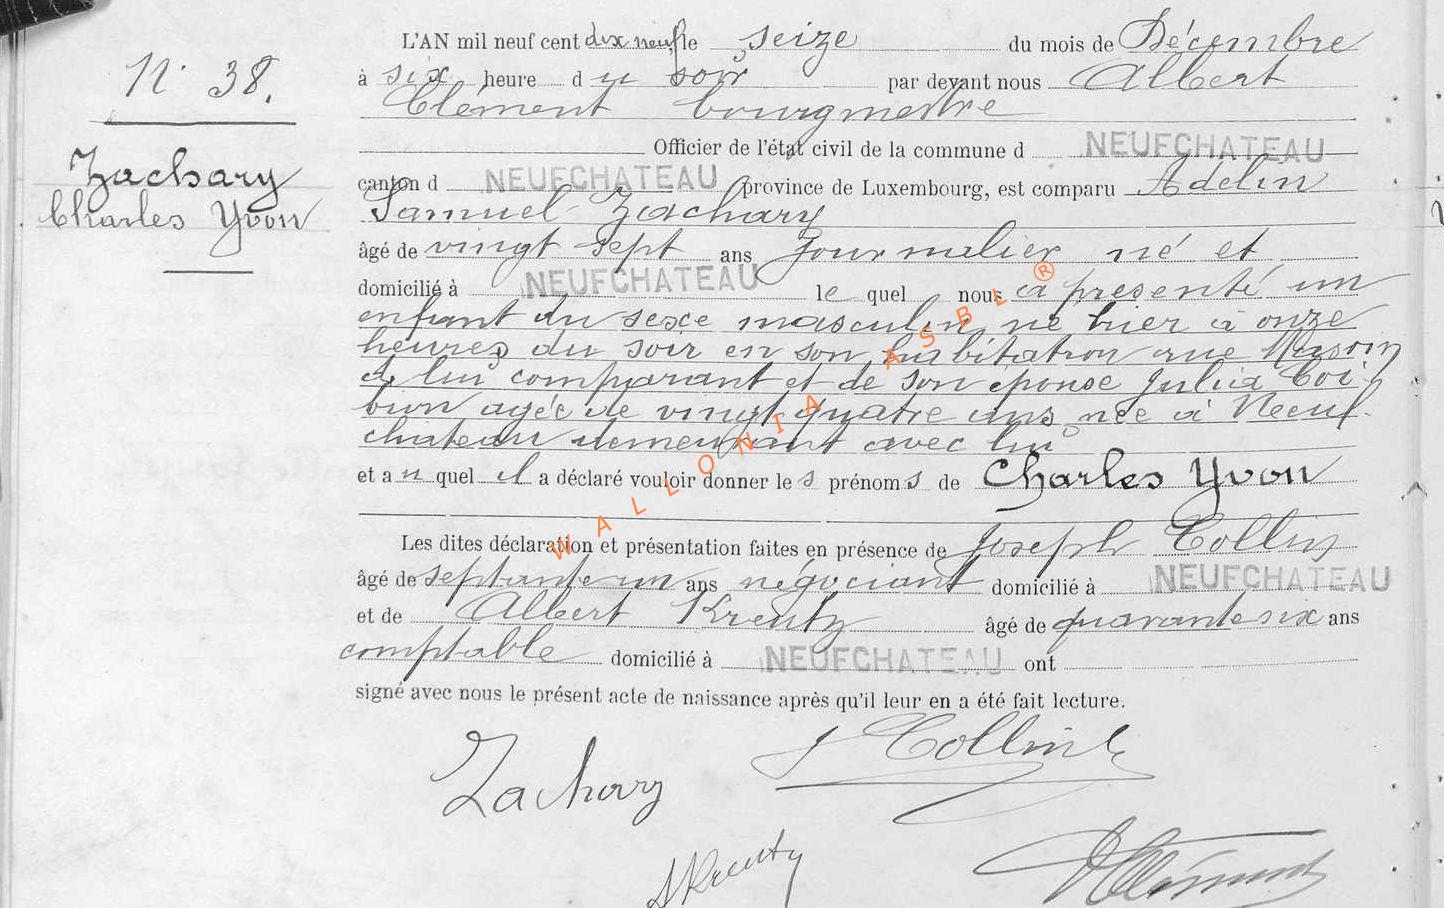 N° 38.
Zachary
Charles Yvon
L'AN mil neuf cent dix neuf le seize du mois de Décembre
à six heure du soir par devant nous Albert
Clément bourgmestre
Officier de l'état civil de la commune d NEUFCHATEAU
canton d NEUFCHATEAU province de Luxembourg, est comparu Adelin
Samuel Zachary
âgé de vingt sept ans journalier né et
domicilié à NEUFCHATEAU le quel nous a présenté un
enfant du sexe masculin, né hier à onze
heures du soir en son habitation rue
de lui comparant et de son épouse Julia Coi-
bion agée de vingt quatre ans née à Neuf-
chateau demeurant avec lui
et au quel il a déclaré vouloir donner les prénoms de Charles Yvon
Les dites déclaration et présentation faites en présence de Joseph Collin
âgé de septante un ans négociant domicilié à NEUFCHATEAU
et de Albert Kreutz âgé de quarante six ans
comptable domicilié à NEUFCHATEAU ont
signé avec nous le présent acte de naissance après qu'il leur en a été fait lecture.
Zachary J Collin
AKreutz AClément
WALLONIA ASBL ®